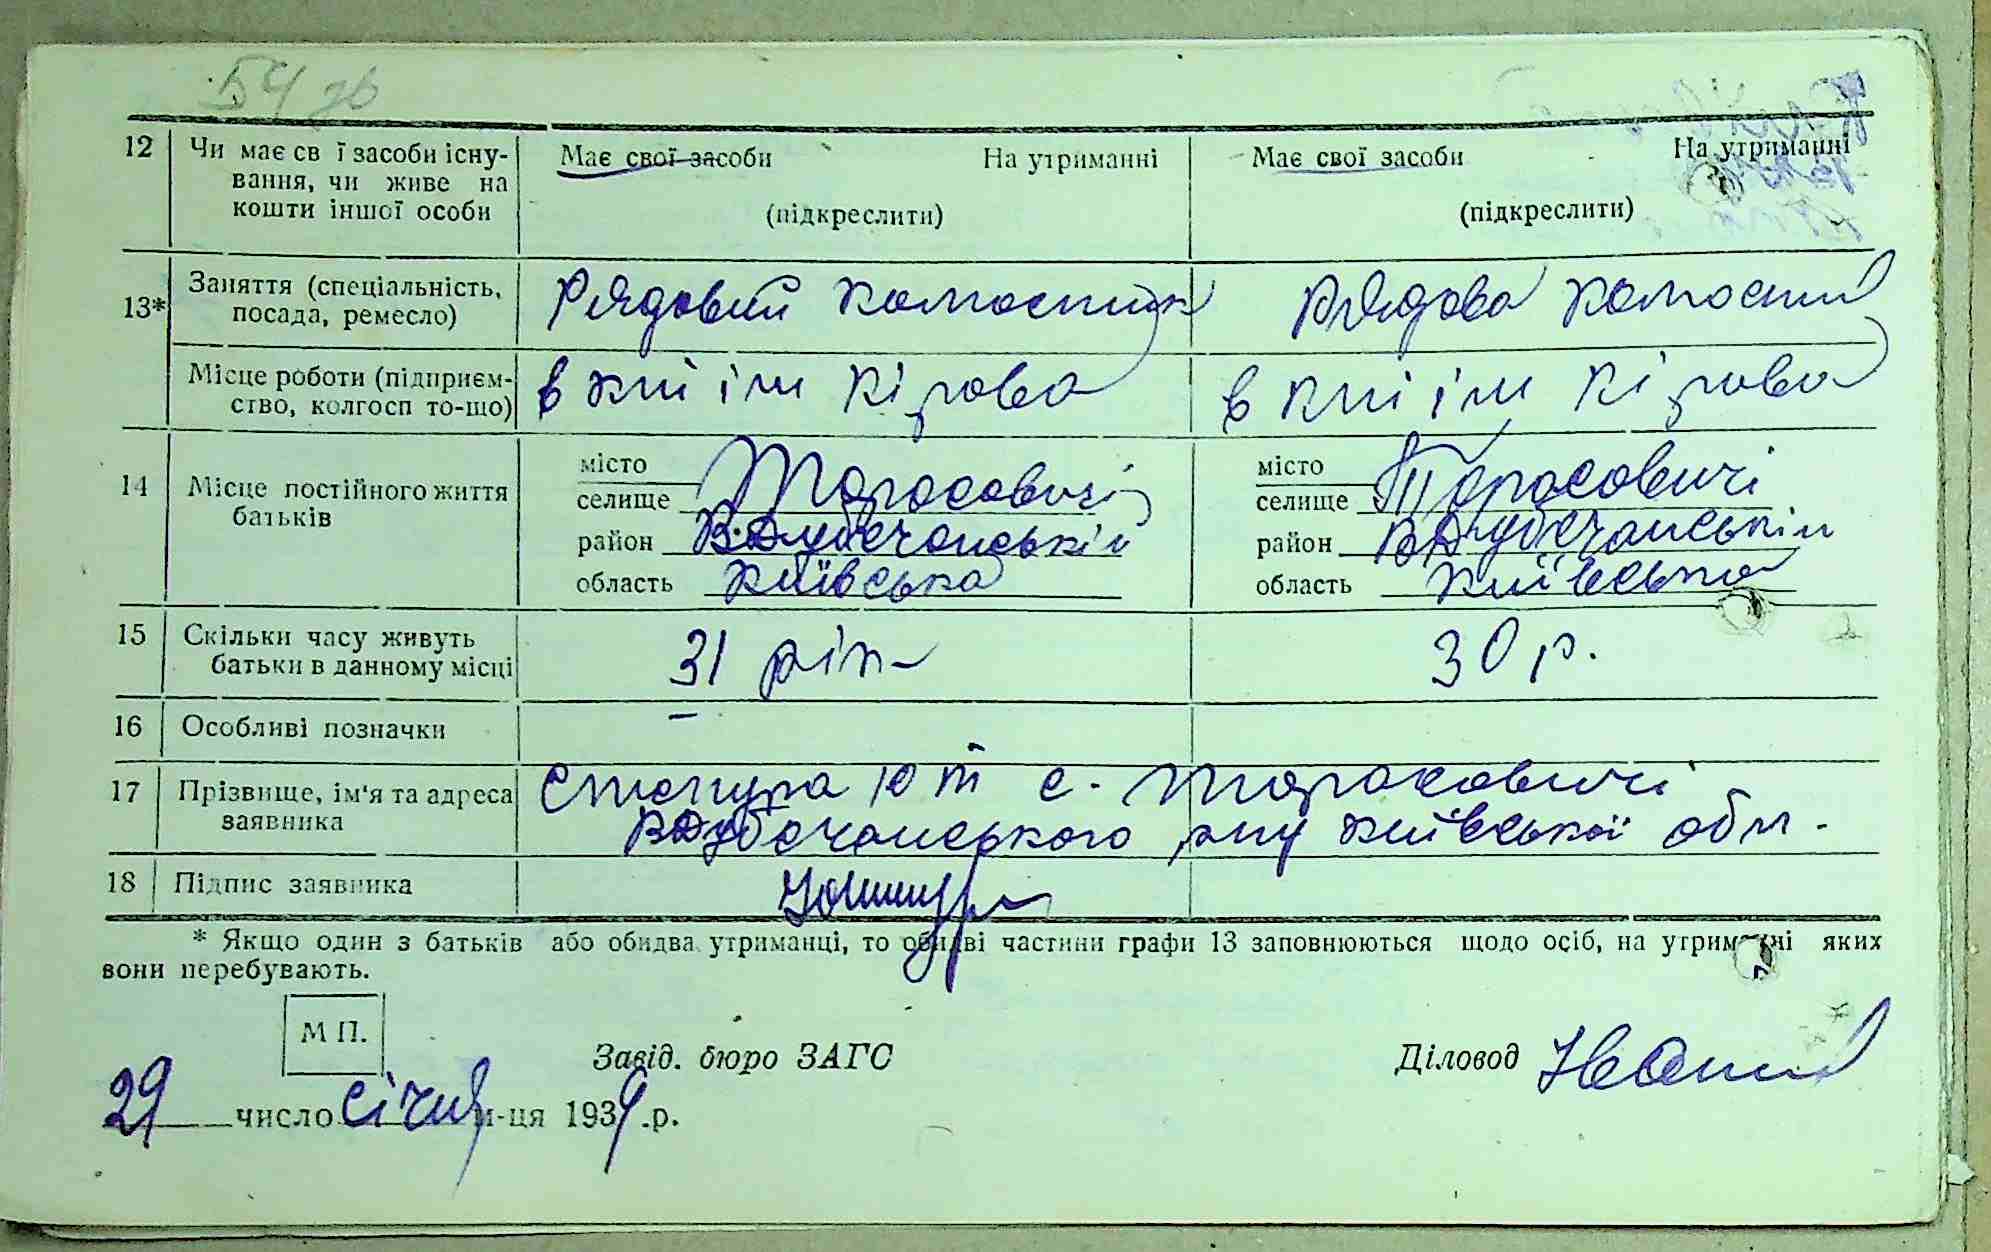 54 зв
12 Чи має св ї засоби існу- Має свої засоби На утриманні Має свої засоби На утриманні
вання, чи живе на
кошти іншої особи (підкреслити) (підкреслити)
13* Заняття (спеціальність, Рядовий колгоспник Рядова колгоспниця
посада, ремесло)
Місце роботи (підприєм- в к-пі ім Кірова в к-пі ім Кірова
ство, колгосп то-що)
місто місто
14 Місце постійного життя селище Тарасовичі селище Тарасовичі
батьків
район В.Дубечанський район В Дубечанський
область Київська область Київська
15 Скільки часу живуть 31 рік 30 р.
батьки в данному місці
16 Особливі позначки –
17 Прізвище, ім'я та адреса с. Тарасовичі
заявника В Дубечанського р-ну Київської обл.
18 Підпис заявника
* Якщо один з батьків або обидва утриманці, то обидві частини графи 13 заповнюються щодо осіб, на утриманні яких
вони перебувають.
М П.
Завід. бюро ЗАГС Діловод
29 число січня м-ця 1939 .р.